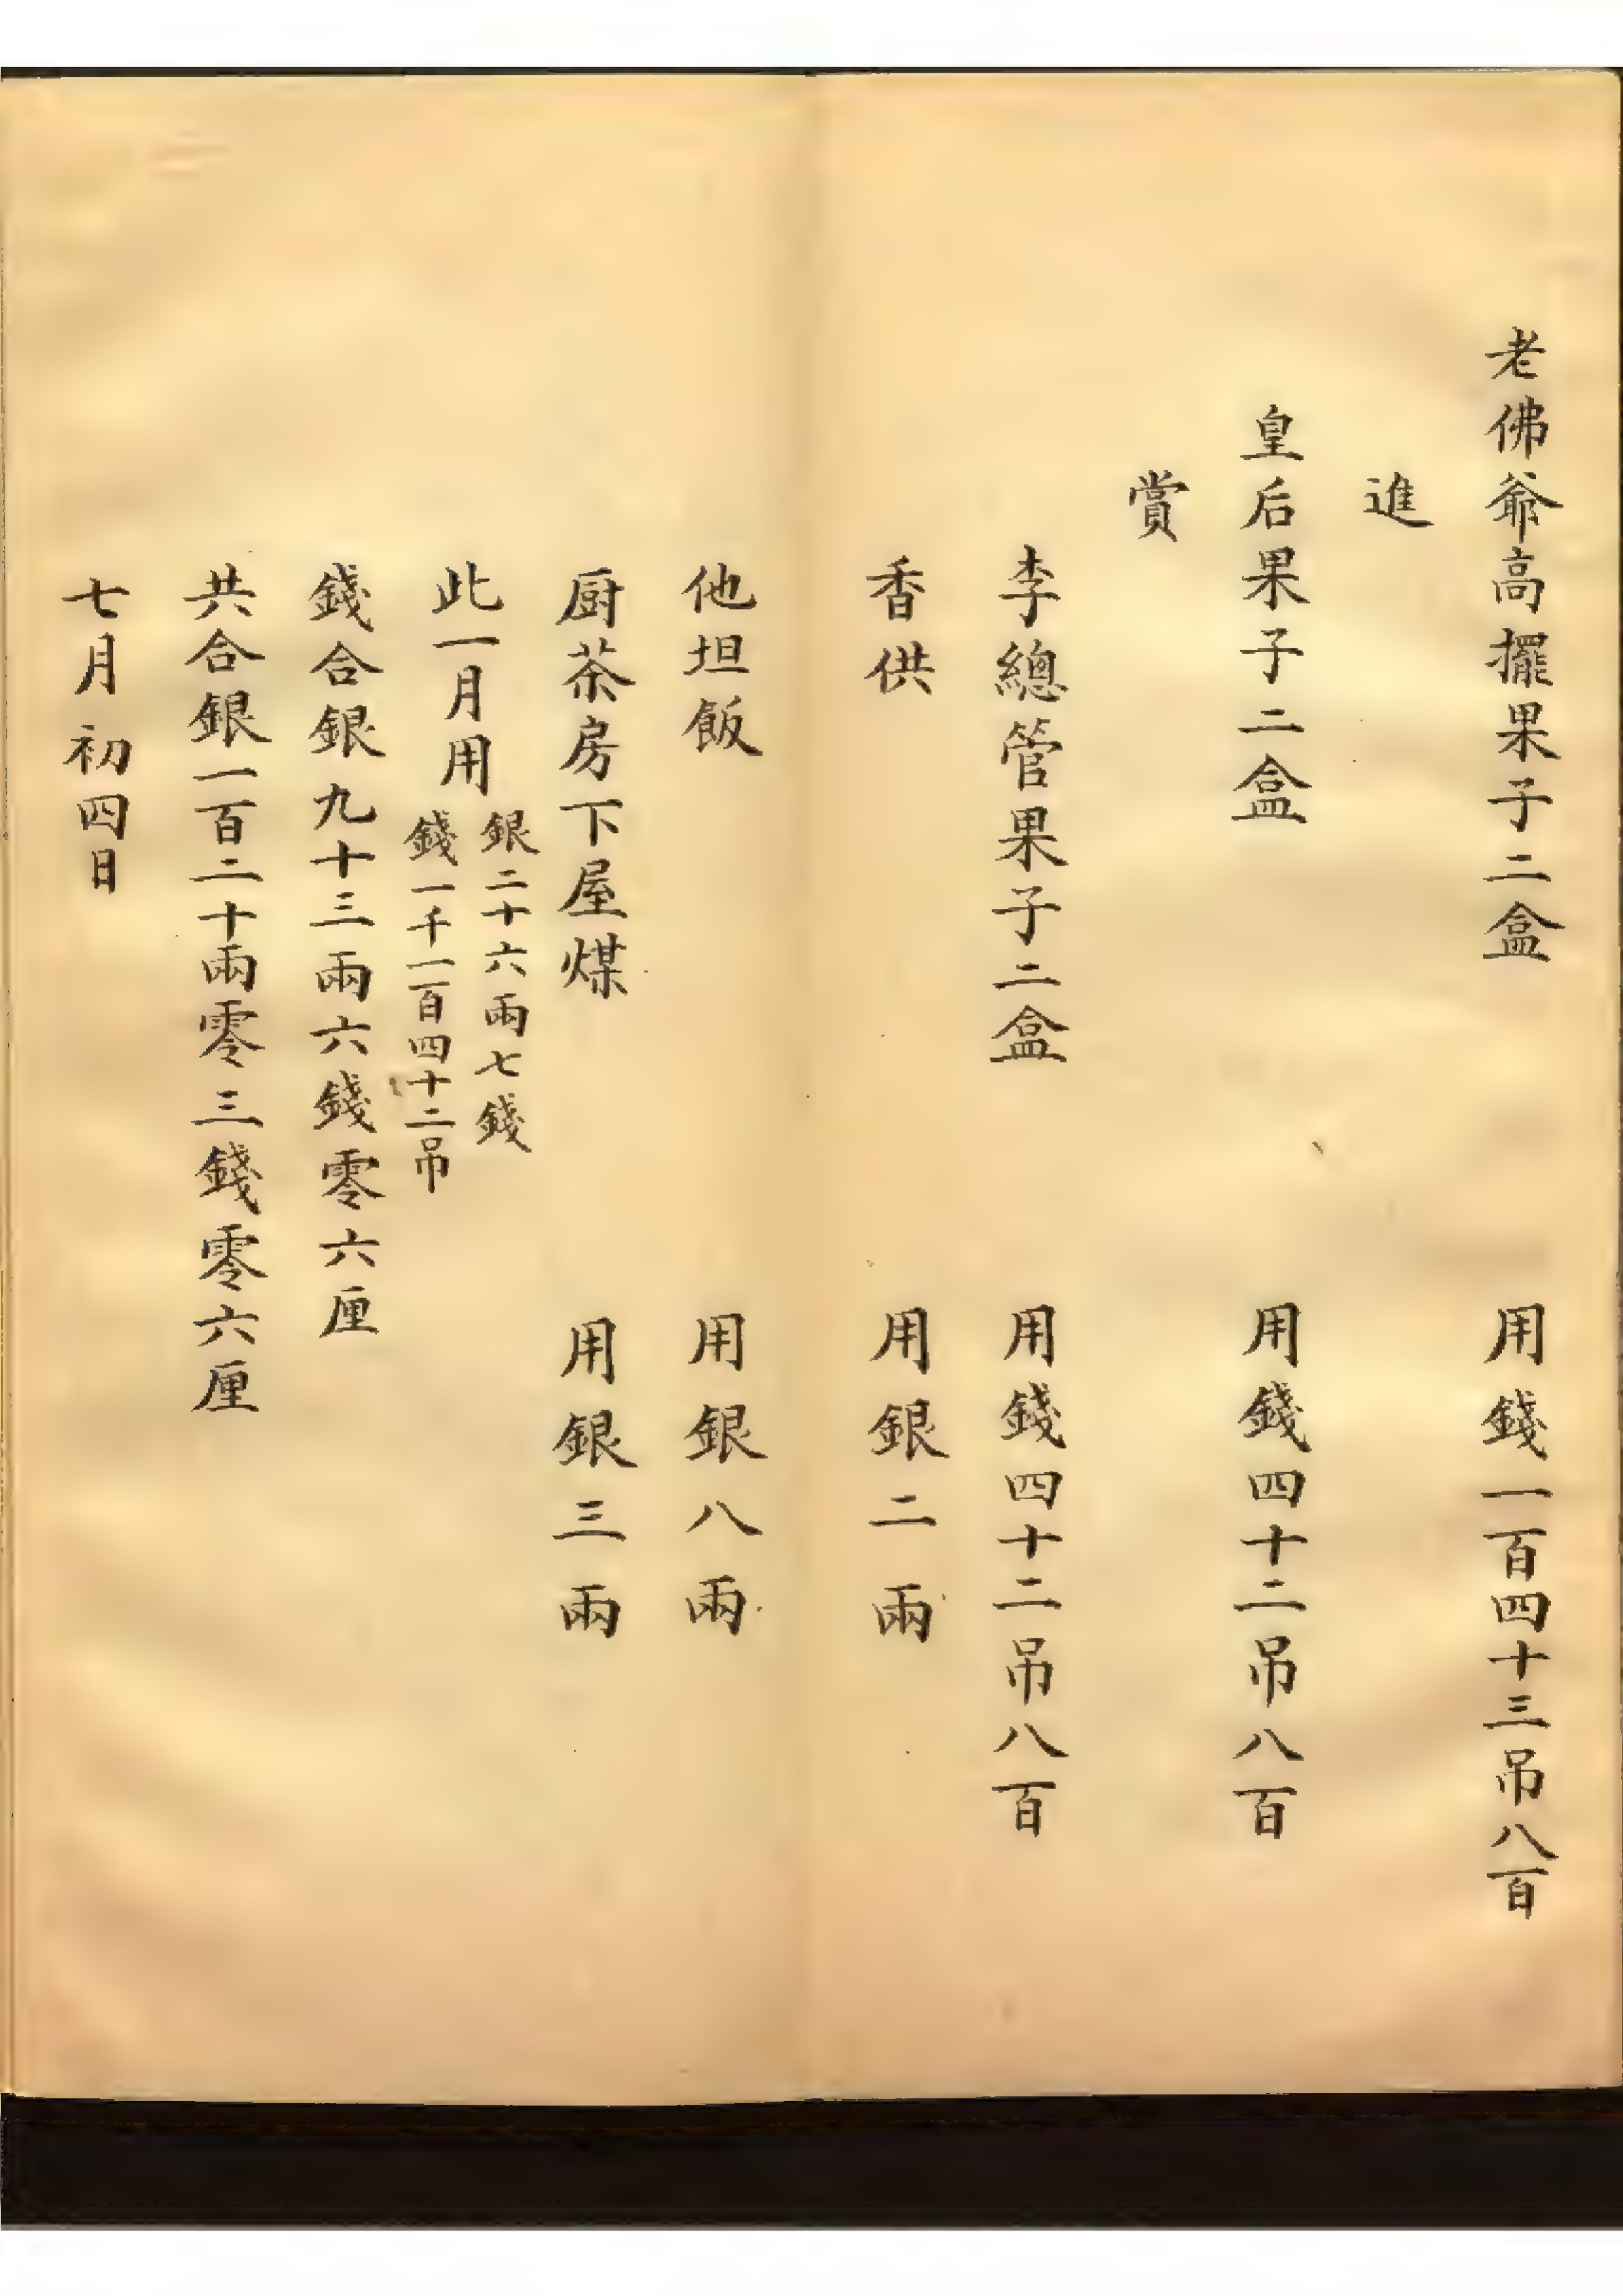 老佛爺高擺果子二盒 用錢一百四十三吊八百
進
皇后果子二盒 用錢四十二吊八百
賞
李總管果子二盒 用錢四十二吊八百
香供 用銀二兩
他坦飯 用銀八兩
厨茶房下屋煤 用銀三兩
此一月用 銀二十六兩七錢
錢一千一百四十二吊
錢合銀九十三兩六錢零六厘
共合銀一百二十兩零三錢零六厘
七月初四日